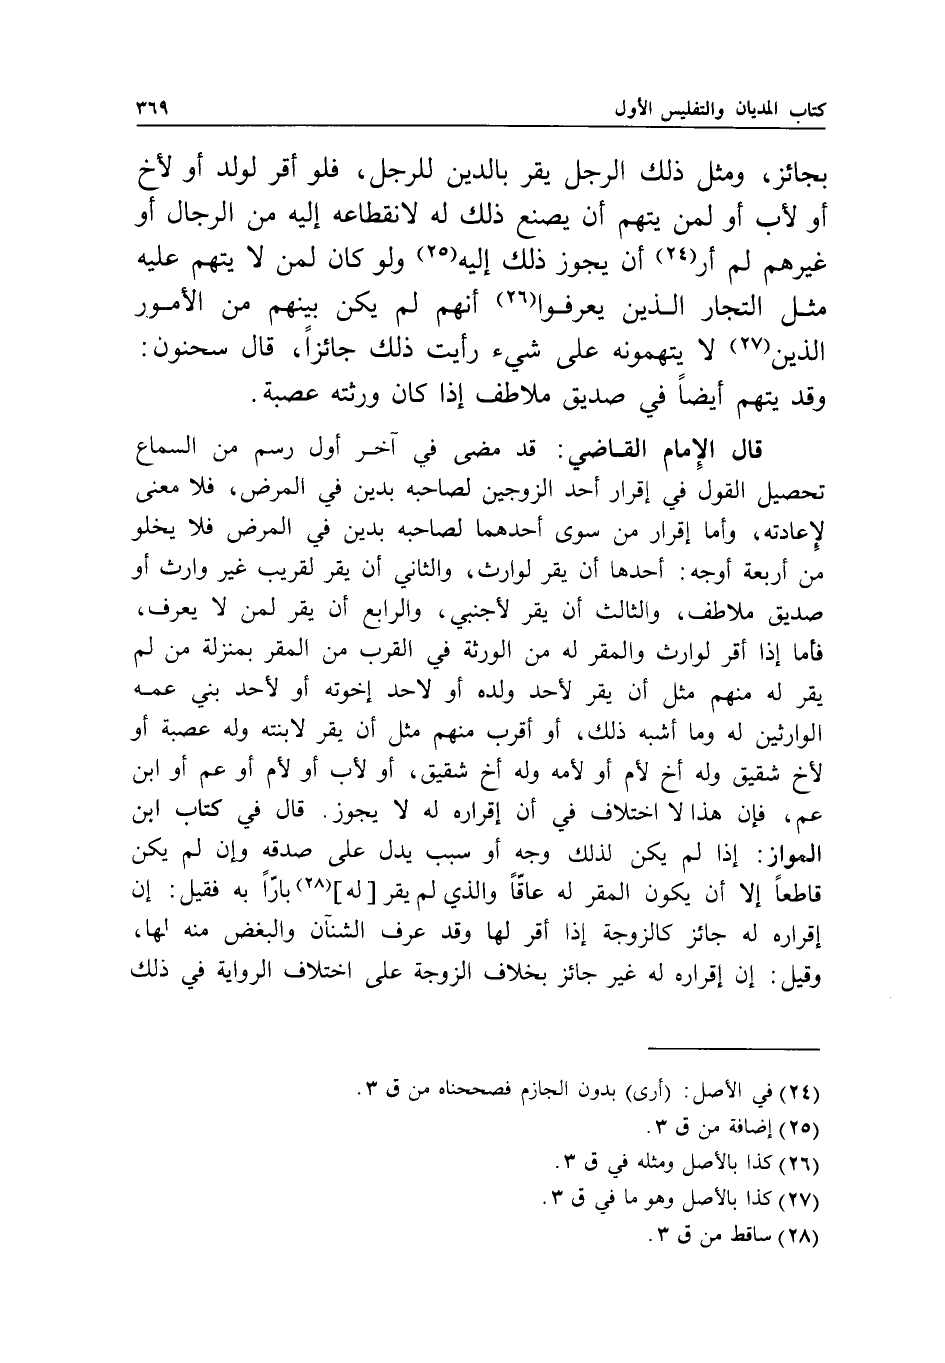 كتاب المديان والتفليس الأول ٣٦٩
بجائز، ومثل ذلك الرجل يقر بالدين للرجل، فلو أقر لولد أو لأخ
أو لأب أو لمن يتهم أن يصنع ذلك له لانقطاعه إليه من الرجال أو
غيرهم لم أر(٢٤) أن يجوز ذلك إليه(٢٥) ولو كان لمن لا يتهم عليه
مثل التجار الذين يعرفوا(٢٦) أنهم لم يكن بينهم من الأمور
الذين(٢٧) لا يتهمونه على شيء رأيت ذلك جائزاً، قال سحنون:
وقد يتهم أيضاً في صديق ملاطف إذا كان ورثته عصبة.
قال الإِمام القاضي: قد مضى في آخر أول رسم من السماع
تحصيل القول في إقرار أحد الزوجين لصاحبه بدين في المرض، فلا معنى
لإِعادته، وأما إقرار من سوى أحدهما لصاحبه بدين في المرض فلا يخلو
من أربعة أوجه: أحدها أن يقر لوارث، والثاني أن يقر لقريب غير وارث أو
صديق ملاطف، والثالث أن يقر لأجنبي، والرابع أن يقر لمن لا يعرف،
فأما إذا أقر لوارث والمقر له من الورثة في القرب من المقر بمنزلة من لم
يقر له منهم مثل أن يقر لأحد ولده أو لاحد إخوته أو لأحد بني عمه
الوارثين له وما أشبه ذلك، أو أقرب منهم مثل أن يقر لابنته وله عصبة أو
لأخ شقيق وله أخ لأم أو لأمه وله أخ شقيق، أو لأب أو لأم أو عم أو ابن
عم، فإن هذا لا اختلاف في أن إقراره له لا يجوز. قال في كتاب ابن
المواز: إذا لم يكن لذلك وجه أو سبب يدل على صدقه وإن لم يكن
قاطعاً إلا أن يكون المقر له عاقّاً والذي لم يقر [له](٢٨) بارّاً به فقيل: إن
إقراره له جائز كالزوجة إذا أقر لها وقد عرف الشنآن والبغض منه لها،
وقيل: إن إقراره له غير جائز بخلاف الزوجة على اختلاف الرواية في ذلك
(٢٤) في الأصل: (أرى) بدون الجازم فصححناه من ق ٣.
(٢٥) إضافة من ق ٣.
(٢٦) كذا بالأصل ومثله في ق ٣.
(٢٧) كذا بالأصل وهو ما في ق ٣.
(٢٨) ساقط من ق ٣.